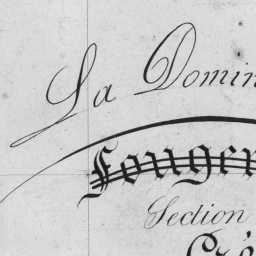 La Domin
Fouger
Section
Crè